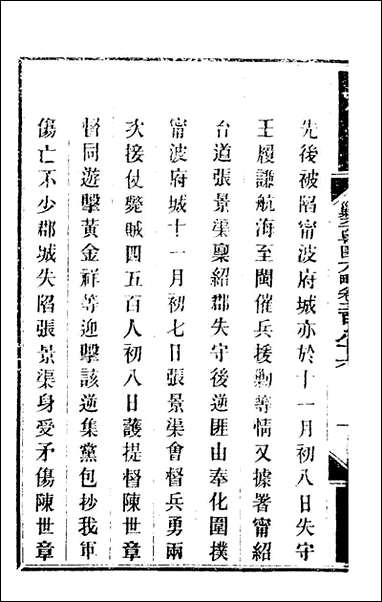 先後被陷甯波府城亦於十一月初八日失守
王履謙航海至閩催兵援勦等情又據署甯紹
台道張景渠稟紹郡失守後逆匪由奉化圍撲
甯波府城十一月初七日張景渠會督兵勇兩
次接仗斃賊四五百人初八日護提督陳世章
督同遊擊黃金祥等迎擊該逆集黨包抄我軍
傷亡不少郡城失陷張景渠身受矛傷陳世章